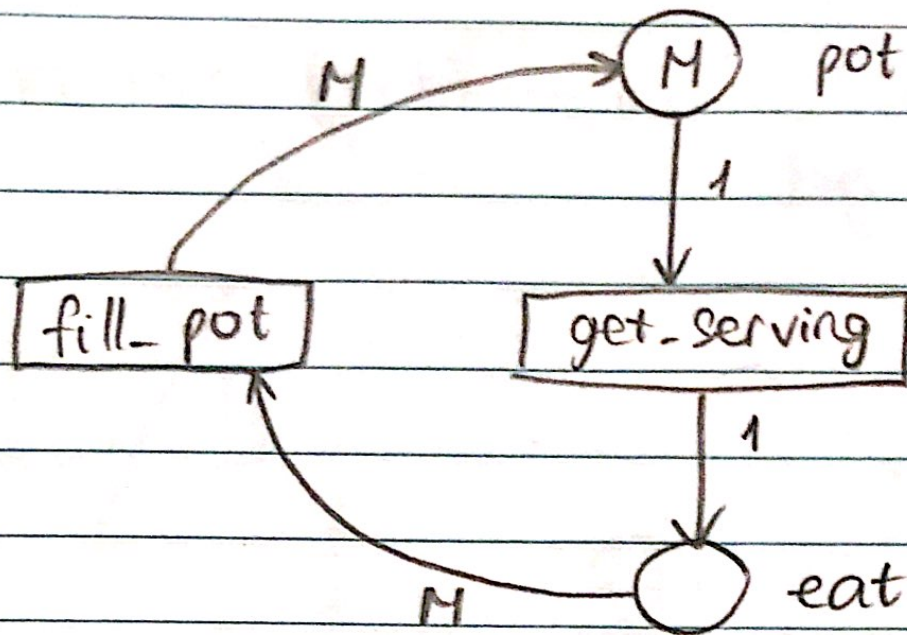 M
M pot
1
fill_ pot
get_serving
1
eat
M